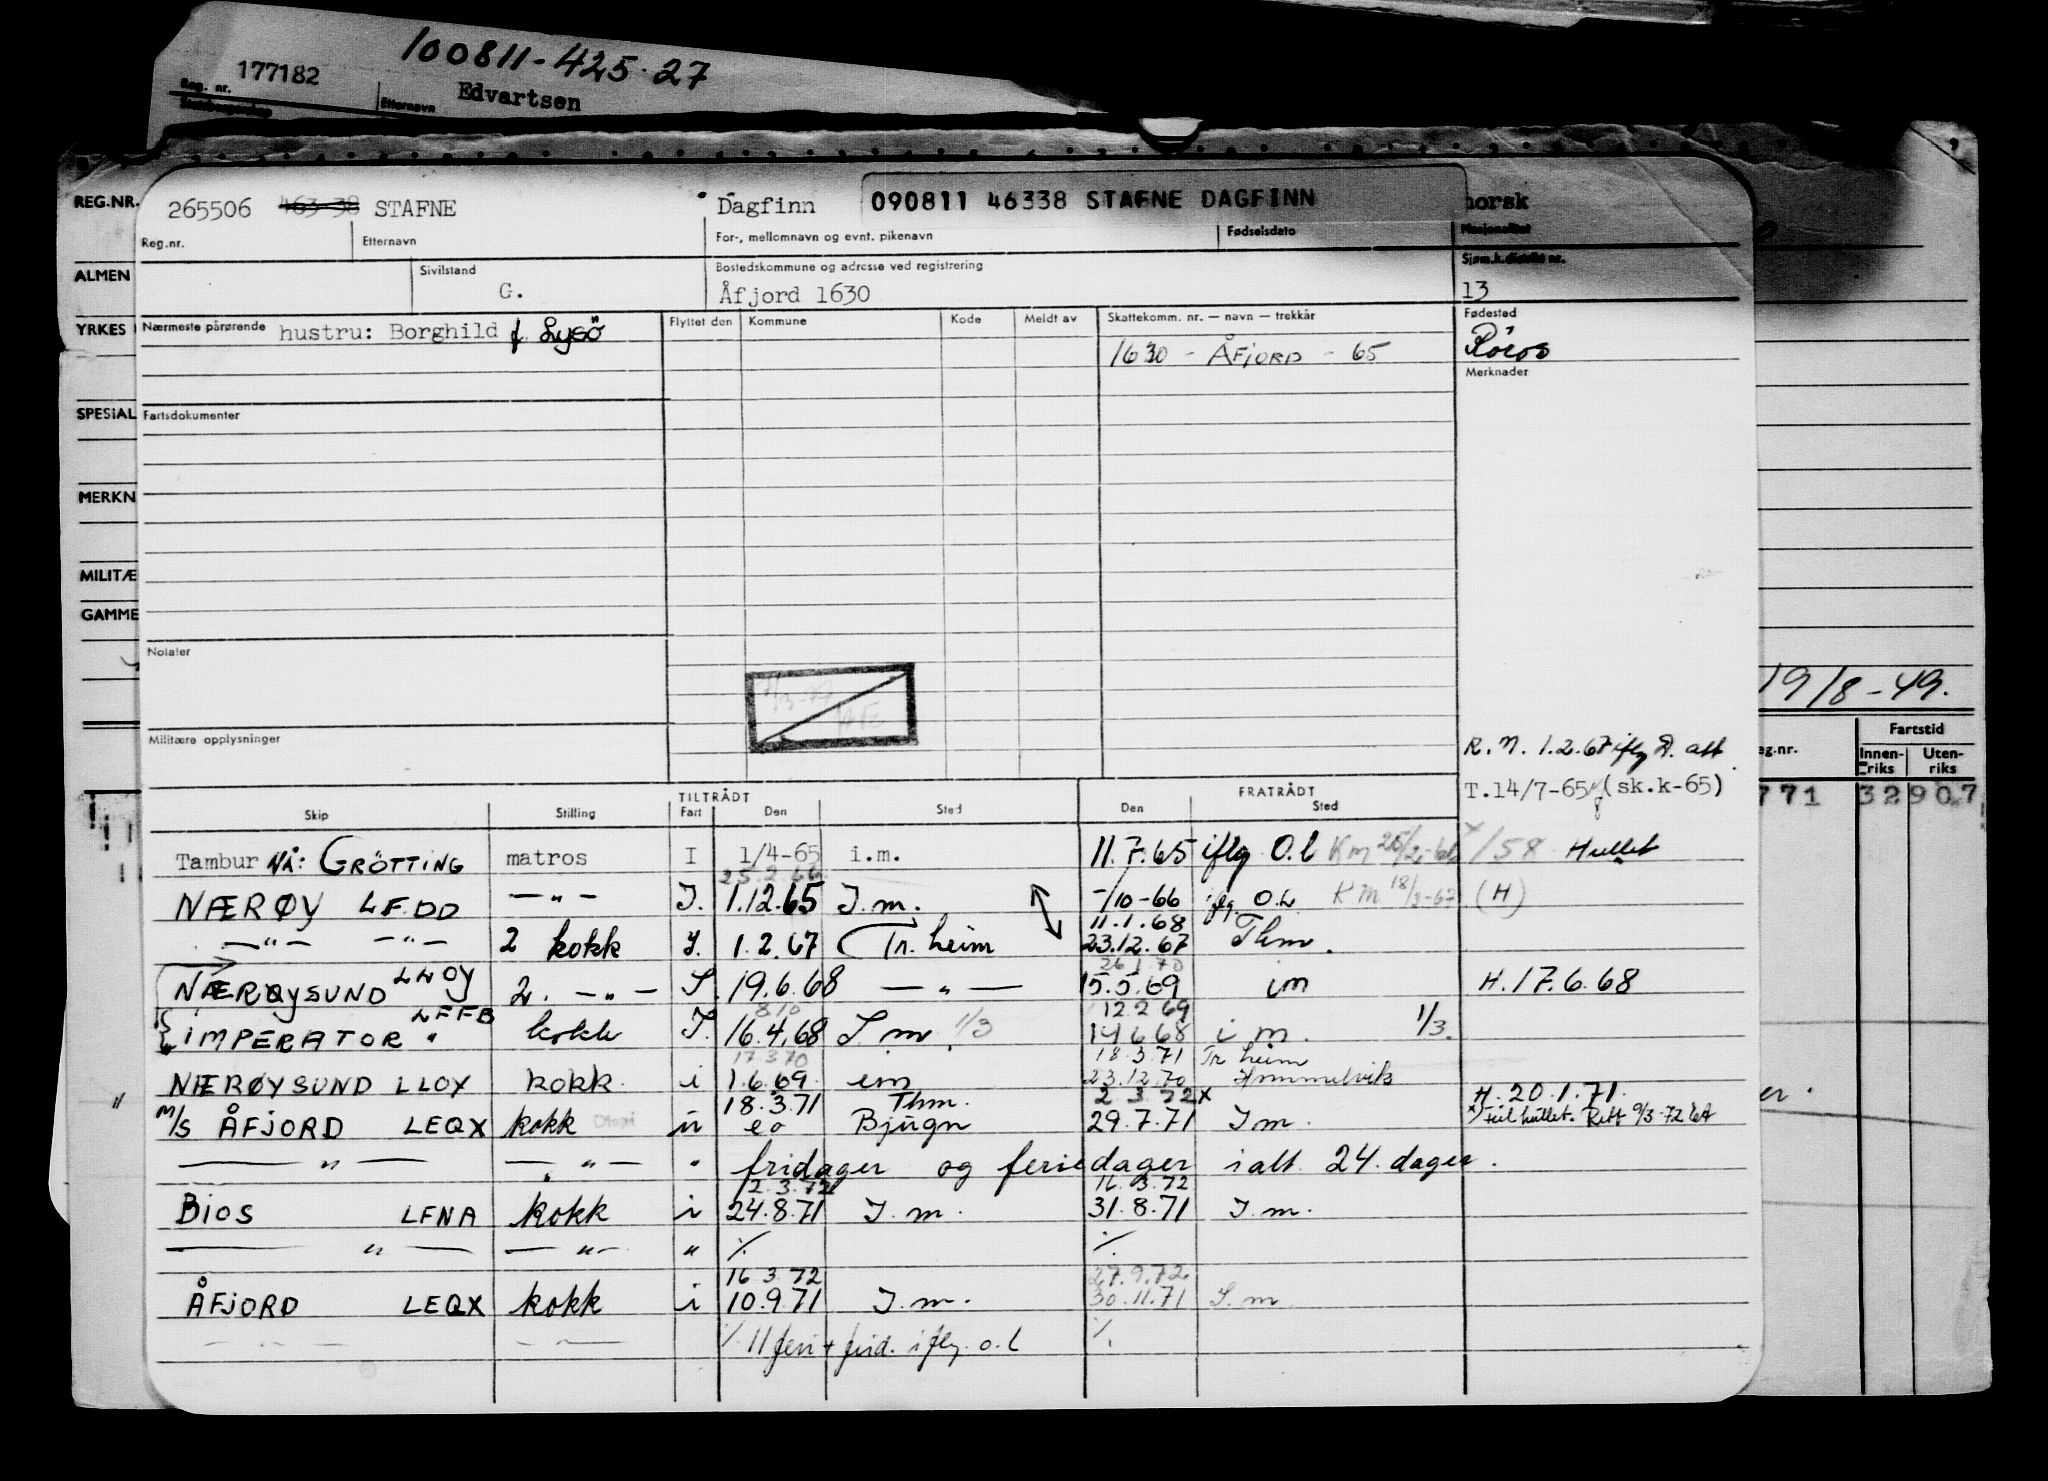 100811-425.27
177182
Reg. nr.
Etternavn
Edvartsen
REG.NR.
265506 463 38 STAFNE
Dagfinn
090811 46338 STAFNE DAGFINN
norsk
Reg.nr.
Etternavn
For-, mellomnavn og evnt. pikenavn
Fødselsdato
Nasjonalitet
ALMEN
Sivilstand
G.
Bostedskommune og adresse ved registrering
Åfjord 1630
Sjøm.k.distrikt nr.
13
YRKES
Nærmeste pårørende hustru: Borghild f. Lysö
Flyttet den
Kommune
Kode
Meldt av
Skattekomm. nr. — navn — trekkår
1630 - ÅFJORD - 65
Fødested
Röros
Merknader
SPESIAL
Fartsdokumenter
MERKN
MILITÆ
GAMME
Notater
19/8-49.
Militære opplysninger
R. N. 1.2.67 iflg. att.
T.14/7-65 (sk.k-65)
Fartstid
ag.nr.
Innenriks
Utenriks
771 32907
Skip
Stilling
TILTRÅDT
Fart
Den
Sted
FRATRÅDT
Den
Sted
Tambur NÅ: GRÖTTING matros I 1/4-65 i.m. 11.7.65 iflg O.l /58 Hullet
25.2.66
NÆRØY LFDD — " — I. 1.12.65 I.m. -/10-66 iflg. O.L. (H)
11.1.68
— " — — " — 2 kokk I. 1.2.67 Tr.heim 23.12.67 Thm.
26.1.70
NÆRØYSUND 2. — " — I. 19.6.68 — " — 15.5.69 im H.17.6.68
12.2.69
IMPERATOR LFFB kokk I. 16.4.68 I m 1/3 14.6.68 i m. 1/3.
17.3.70 18.3.71 Tr heim
NÆRØYSUND LLOX kokk. i 1.6.69. im 23.12.70 Hommelvik
18.3.71 Thm. 2.3.72 x H. 20.1.71.
M/S ÅFJORD LEQX kokk ii eo Bjugn 29.7.71 I m. x) Feil hullet. Rett 9/3-72
— " — — " — " fridager og feriedager i alt 24. dager.
2.3.72 16.3.72
BIOS LFNA kokk i 24.8.71 I.m. 31.8.71 I.m.
— " — — " — " ⁒ ⁒
16.3.72 27.9.72
ÅFJORD LEQX kokk i 10.9.71 I.m. 30.11.71 I.m
⁒ 11 feri + frid. iflg. o.l ⁒